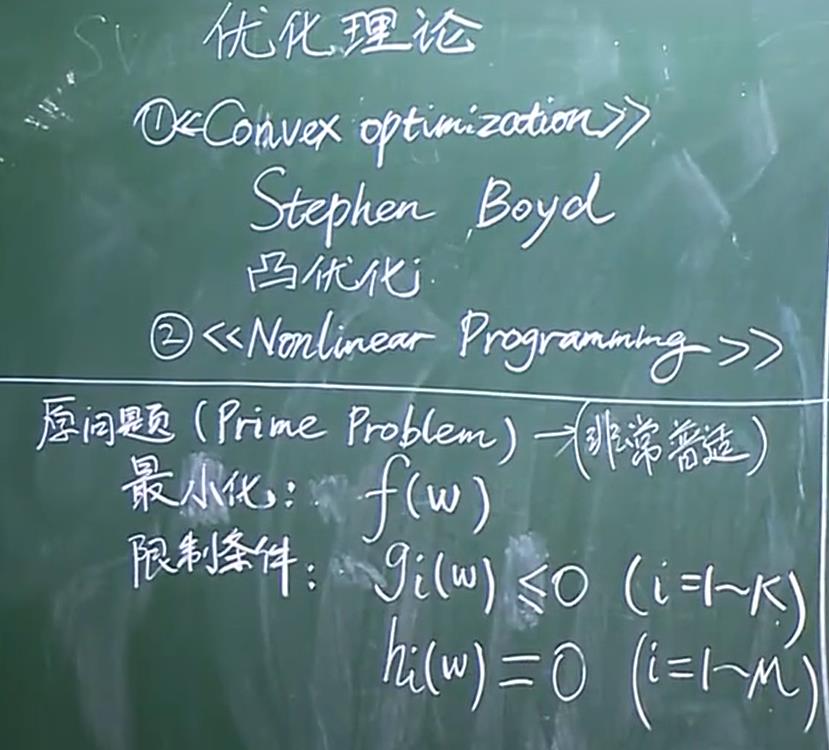 优化理论
①《Convex optimization》
Stephen Boyd
凸优化
②《Nonlinear Programming》
原问题 (Prime Problem) →(非常普适)
最小化: f(w)
限制条件: gᵢ(w) ≤ 0 (i=1~K)
hᵢ(w) = 0 (i=1~M)